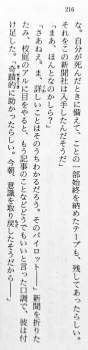 216
な。自分が死んだときに備えて、ことの一部始終を納めたテープも、残してあったらしい。
それをこの新聞社は入手したんだそうだ」
「まあ、ほんとなのかしら？」
「さあねえ。ま、詳しいことはそのうちわかるだろう。そのパイロット――」新聞を折り
たみ、校庭のアルに目をやると、もう記事のことなどどうでもいいと言った口調で、彼は付
け足した。「奇蹟的に助かったらしい。今朝、意識を取り戻したそうだから――」